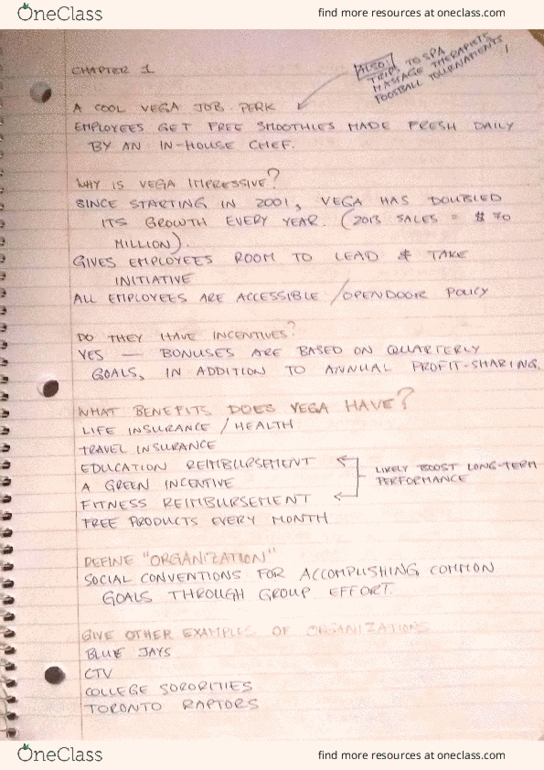 OneClass
find more resources at oneclass.com
CHAPTER 1
ALSO:
TRIPS TO SPA
MASSAGE THERAPISTS
FOOSBALL TOURNAMENTS!
A COOL VEGA JOB PERK
EMPLOYEES GET FREE SMOOTHIES MADE FRESH DAILY
BY AN IN-HOUSE CHEF.
WHY IS VEGA IMPRESSIVE?
SINCE STARTING IN 2001, VEGA HAS DOUBLED
ITS GROWTH EVERY YEAR. (2013 SALES = $70
MILLION).
GIVES EMPLOYEES ROOM TO LEAD & TAKE
INITIATIVE
ALL EMPLOYEES ARE ACCESSIBLE / OPENDOOR POLICY
DO THEY HAVE INCENTIVES?
YES — BONUSES ARE BASED ON QUARTERLY
GOALS, IN ADDITION TO ANNUAL PROFIT-SHARING.
WHAT BENEFITS DOES VEGA HAVE?
LIFE INSURANCE / HEALTH
TRAVEL INSURANCE
EDUCATION REIMBURSEMENT
A GREEN INCENTIVE
LIKELY BOOST LONG-TERM
PERFORMANCE
FITNESS REIMBURSEMENT
FREE PRODUCTS EVERY MONTH
DEFINE "ORGANIZATION"
SOCIAL CONVENTIONS FOR ACCOMPLISHING COMMON
GOALS THROUGH GROUP EFFORT.
GIVE OTHER EXAMPLES OF ORGANIZATIONS
BLUE JAYS
CTV
COLLEGE SORORITIES
TORONTO RAPTORS
OneClass
find more resources at oneclass.com